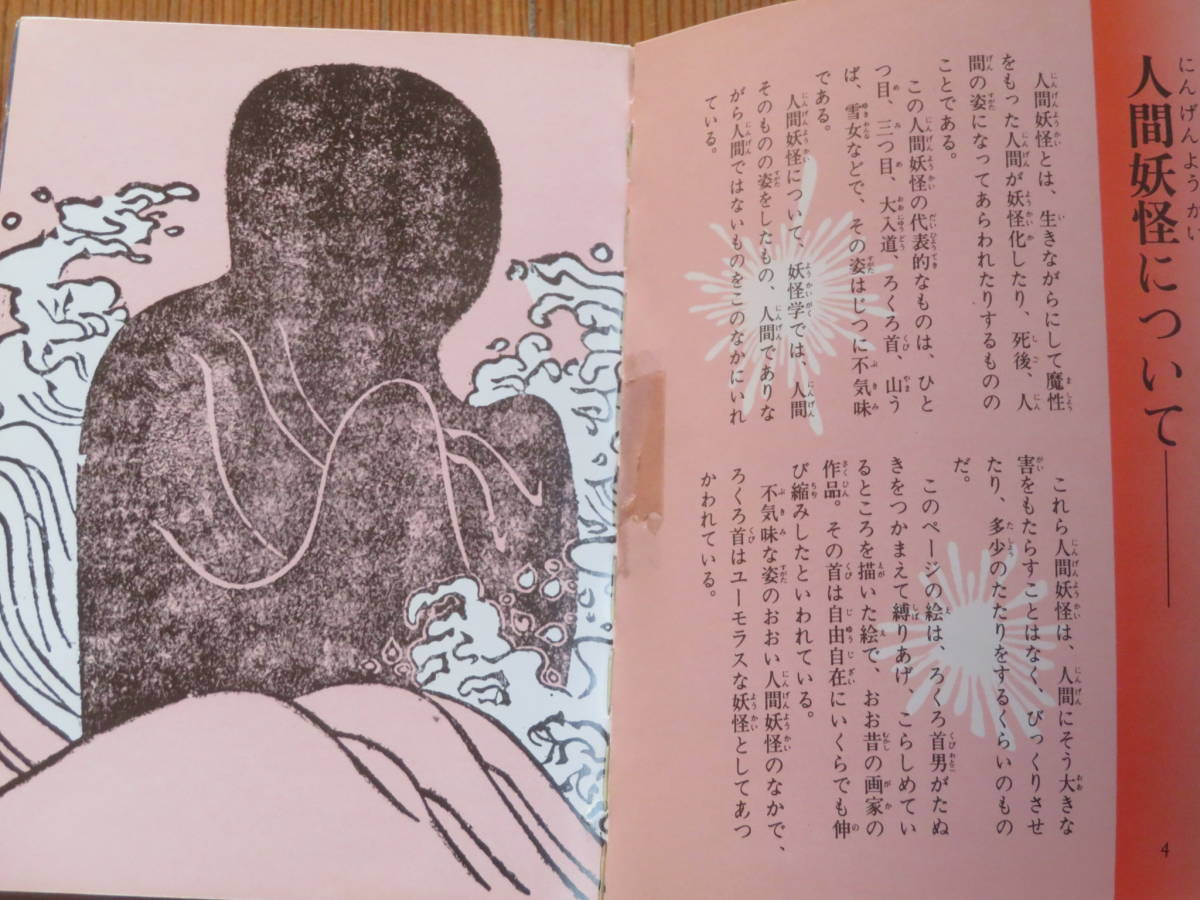 人間妖怪について――
にんげんようかい
人間妖怪とは、生きながらにして魔性
をもった人間が妖怪化したり、死後、人
間の姿になってあらわれたりするものの
ことである。
この人間妖怪の代表的なものは、ひと
つ目、三つ目、大入道、ろくろ首、山う
ば、雪女などで、その姿はじつに不気味
である。
人間妖怪について、妖怪学では、人間
そのものの姿をしたもの、人間でありな
がら人間ではないものをこのなかにいれ
ている。
これら人間妖怪は、人間にそう大きな
害をもたらすことはなく、びっくりさせ
たり、多少のたたりをするくらいのもの
だ。
このページの絵は、ろくろ首男がたぬ
きをつかまえて縛りあげ、こらしめてい
るところを描いた絵で、おお昔の画家の
作品。その首は自由自在にいくらでも伸
び縮みしたといわれている。
不気味な姿のおおい人間妖怪のなかで、
ろくろ首はユーモラスな妖怪としてあつ
かわれている。
4